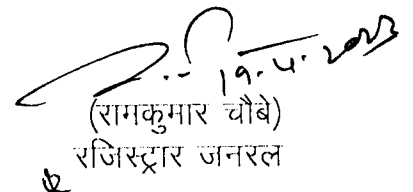 19.4.2023
(रामकुमार चौबे)
रजिस्ट्रार जनरल